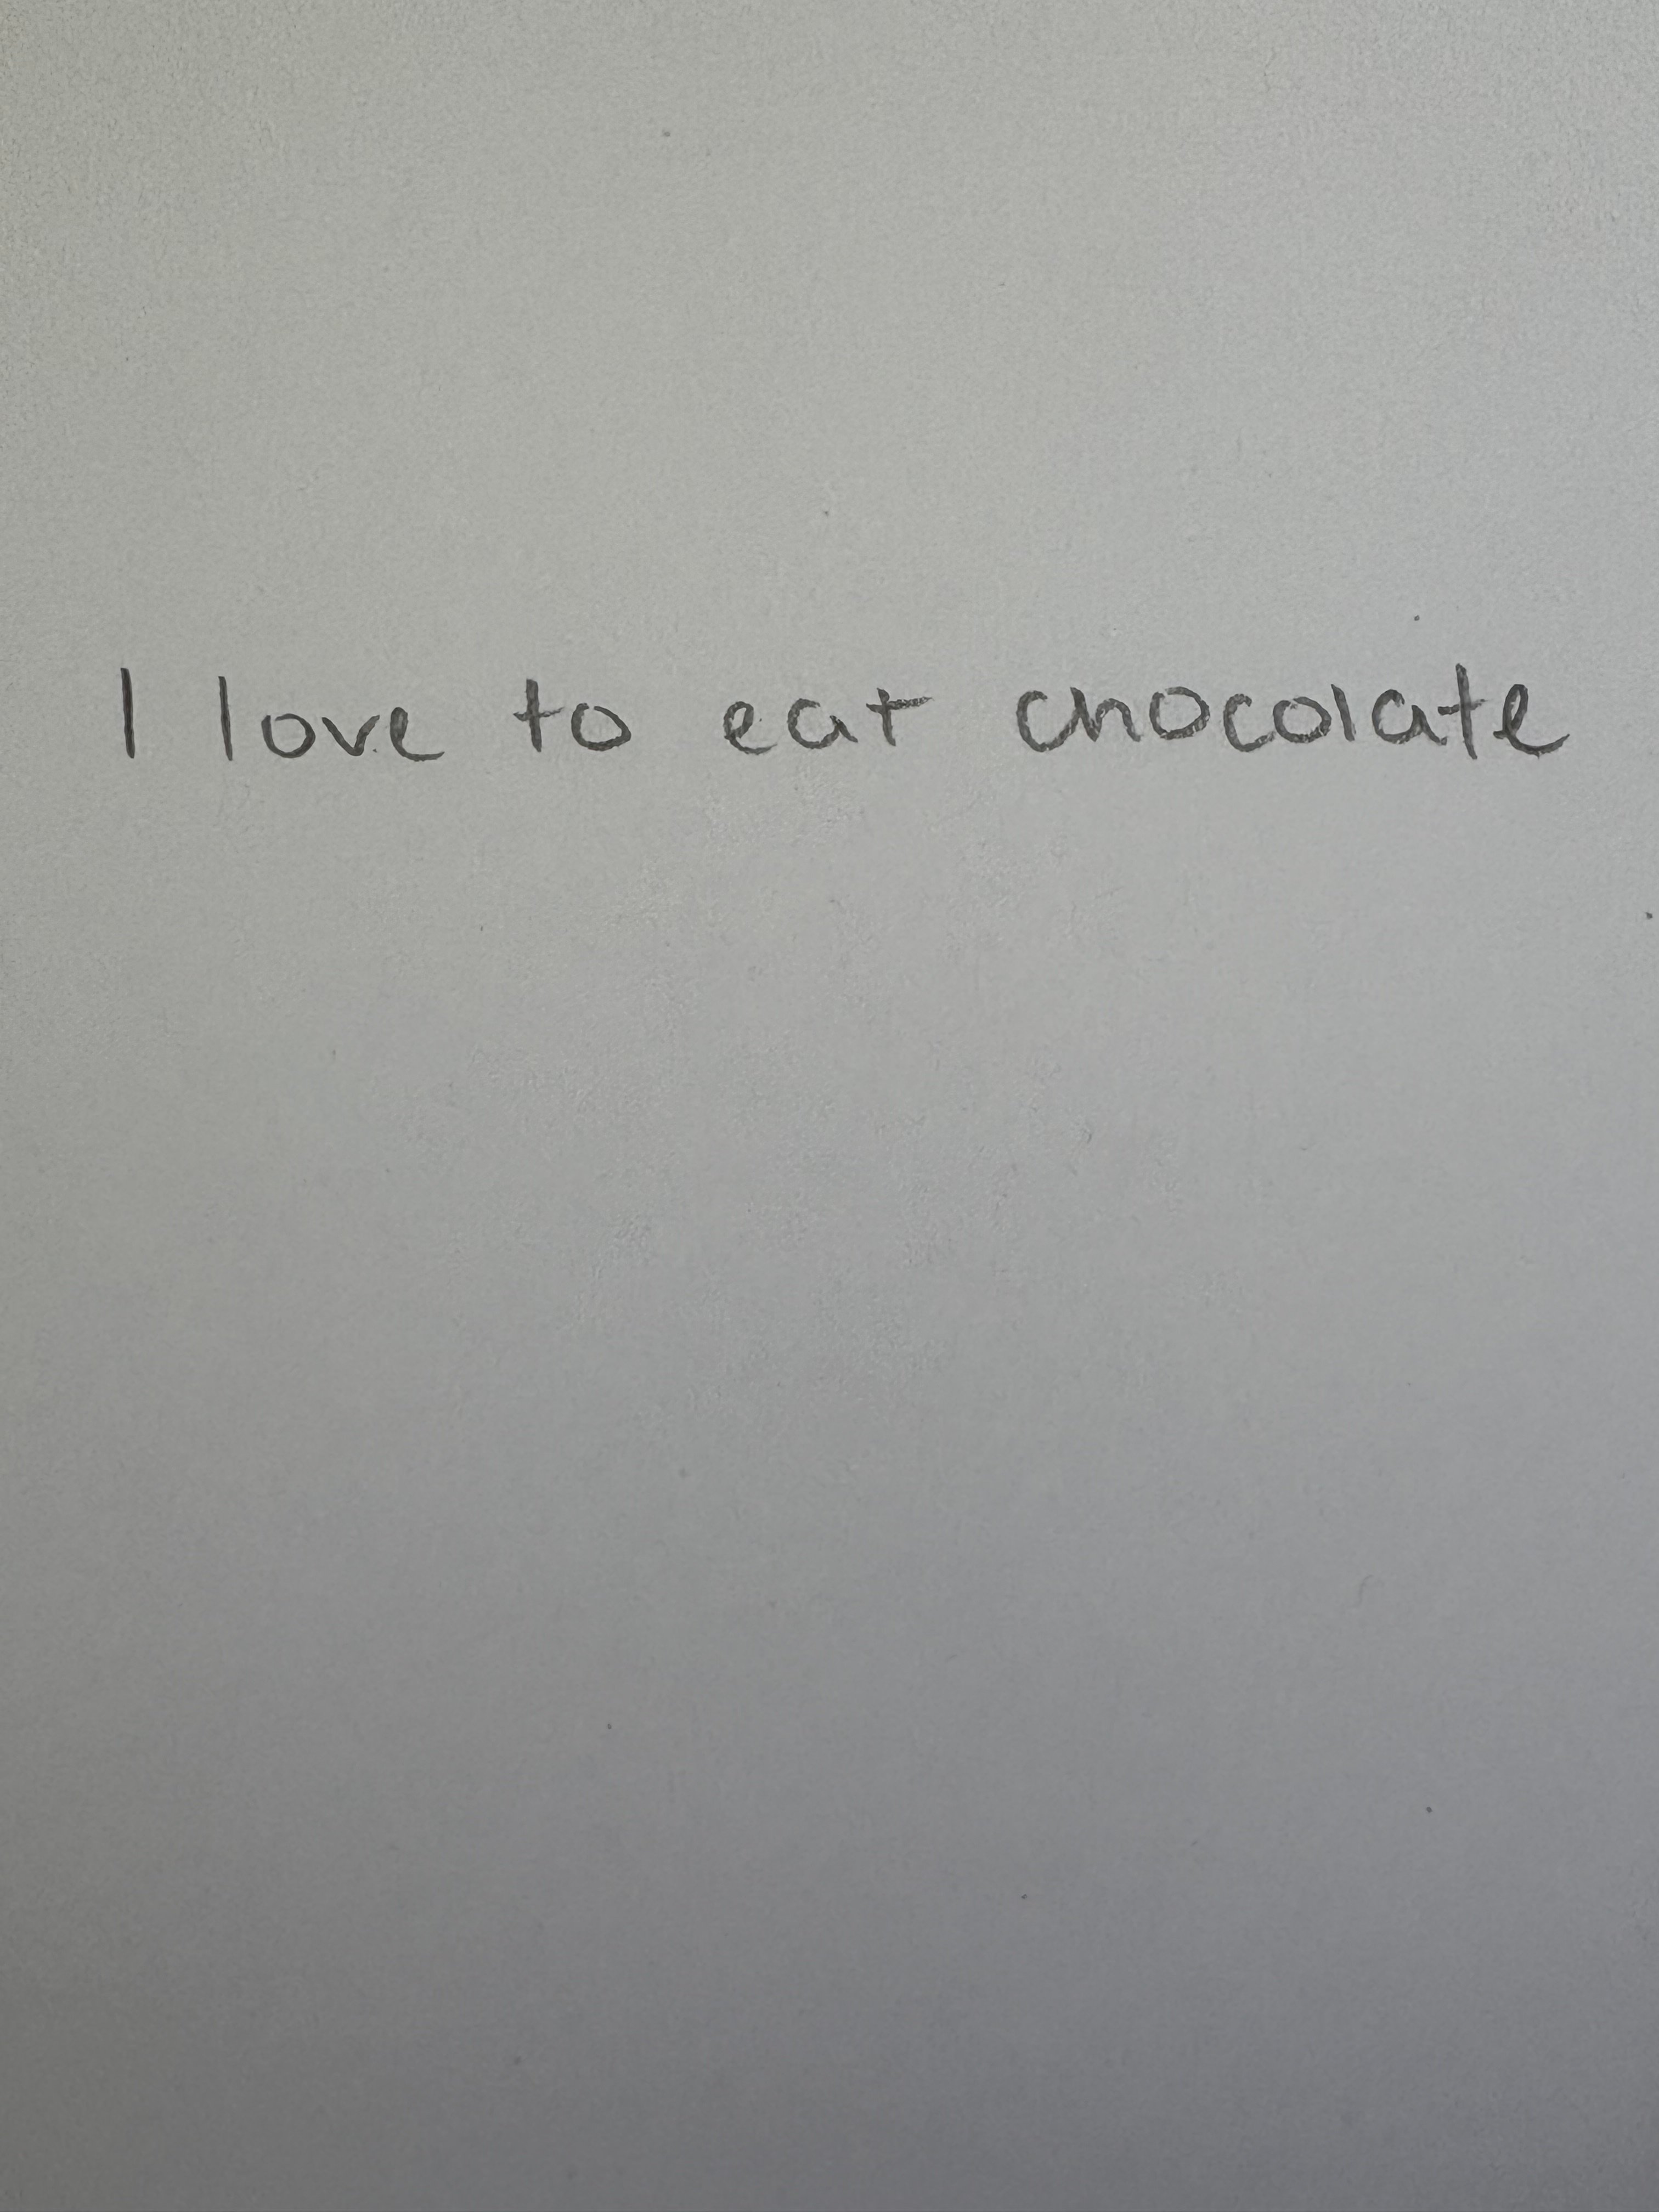 I love to eat chocolate